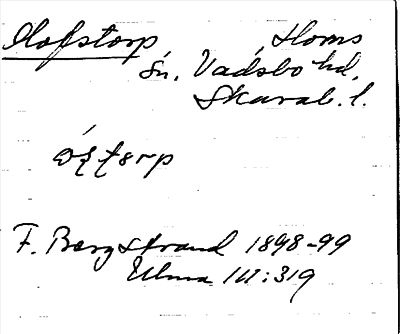 Olofstorp Homs
Sn. Vadsbo hd.
Skarab. l.
F. Bergstrand 1898-99
Ulma 111:319